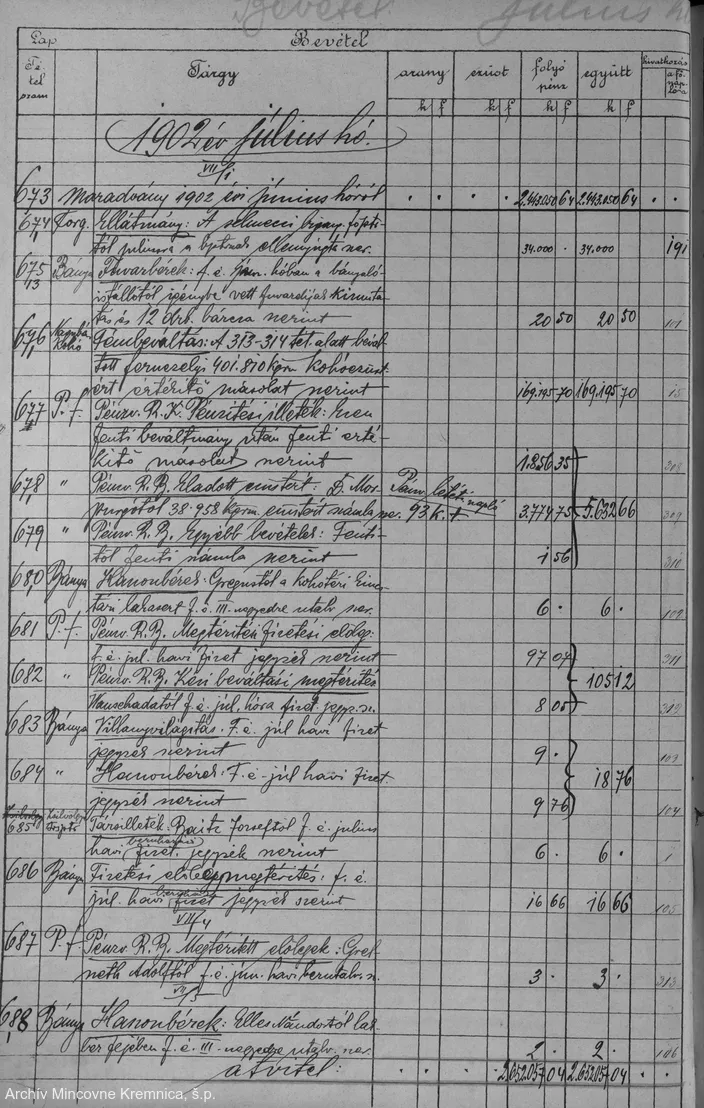 Bevétel Július hó
Lap Bevétel
Tétel szám Tárgy arany ezüst folyó pénz együtt hivatkozás a fő naplóra
k f k f k f k f
1902 év július hó.
VII/1
673 Maradvány 1902 évi június hóról . . . . 2,443.050 64 2,443.050 64 . .
674 Forg. Ellátmány: A selmeci bányaig. főpénz-
tártól júliusra a 34.000 . 34.000 . 191
675 Bánya Fuvarbérek: f. é. jún. hóban a bányaló-
istállótól igénybe vett fuvardíjak kimuta-
tás és 12 drb. bárca szerint 20 50 20 50 101
676 Nagybá. Kohó Fémbeváltás: A 313-314 tét. alatt bevál-
tott fernezelyi 401.870 kgrm kohóezüst
ért értesítő másolat szerint 169.195 70 169.195 70 15
677 P. f. Pénzv. R. K. Pénzítési illeték:
fenti beváltmány után fenti érte-
sítő másolat szerint 1.856 35 308
678 " Pénzv. R. B. Eladott ezüstért: D. Mor- Pénzv. letéti napló
purgótól 38.958 kgrm. ezüstért számla sz. 93 k. t 3.774 75 5.632 66 309
679 " Pénzv. R. B. Egyéb bevételek: Fenti-
től fenti számla szerint 1 56 310
680 Bánya Haszonbérek: Gregustól a kohótéri
lakásért f. é. III. negyedre utalv. sz. 6 . 6 . 102
681 P. f. Pénzv. R. B. Megtérített fizetési előleg:
f. é. júl. havi fizet. jegyzék szerint 97 07 311
682 " Pénzv. R. B. Kézi beváltási megtérítés
Wauschadától f. é. júl. hóra fizet. jegyz. sz. 8 05 105 12 312
683 Bánya Villanyvilágítás. F. é. júl havi fizet.
jegyzék szerint 9 . 103
684 " Haszonbérek: F. é. júl havi fizet.
jegyzék szerint 9 76 18 76 104
685 Társilleték. Baitz Józseftől f. é. július
havi fizet. jegyzék szerint 6 . 6 . 1
686 Bánya Fizetési előlegmegtérítés: f. é.
júl. havi fizet jegyzék szerint 16 66 16 66 105
VII/4
687 P. f. Pénzv. R. B. Megtérített előlegek: Gret-
neth Adolftól f. é. jún. havi bérutalv. sz. 3 . 3 . 313
VII/5
688 Bánya Haszonbérek: Elles Nándortól lak-
bér fejében f. é. III. negyedre utalv. sz. 2 . 2 . 106
átvitel: . . . . 2,652.057 04 2,652.057 04 . .
Archív Mincovne Kremnica, š.p.